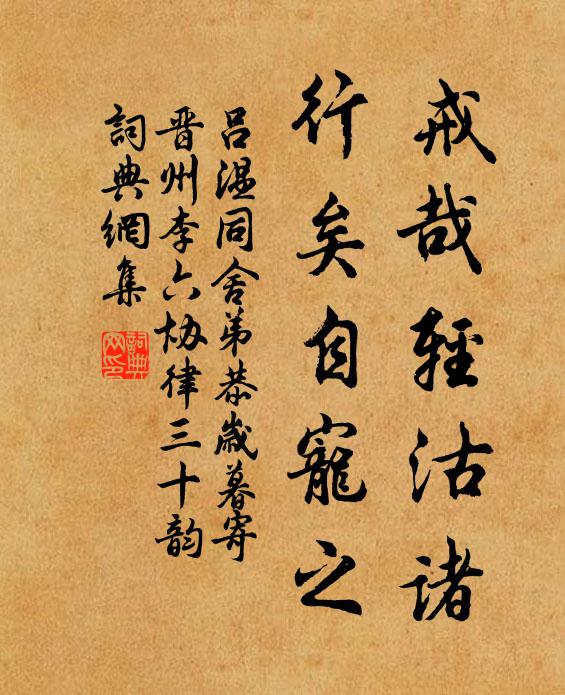 戒哉輕沽諸
行矣自寵之
呂温同舍弟恭歲暮寄
晋州李六協律三十韵
詞典網集
詞典
网印